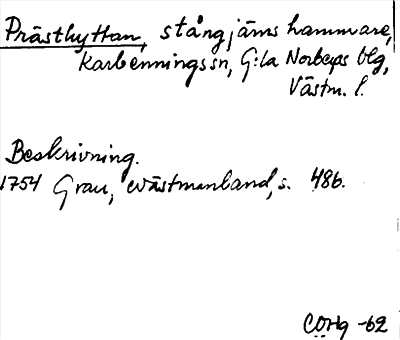 Prästhyttan, stångjärnshammare,
Karbenningssn, G:la Norbergs blg,
Västm. l.
Beskrivning.
1754 Grau, Wästmanland, s. 486.
COHg -62